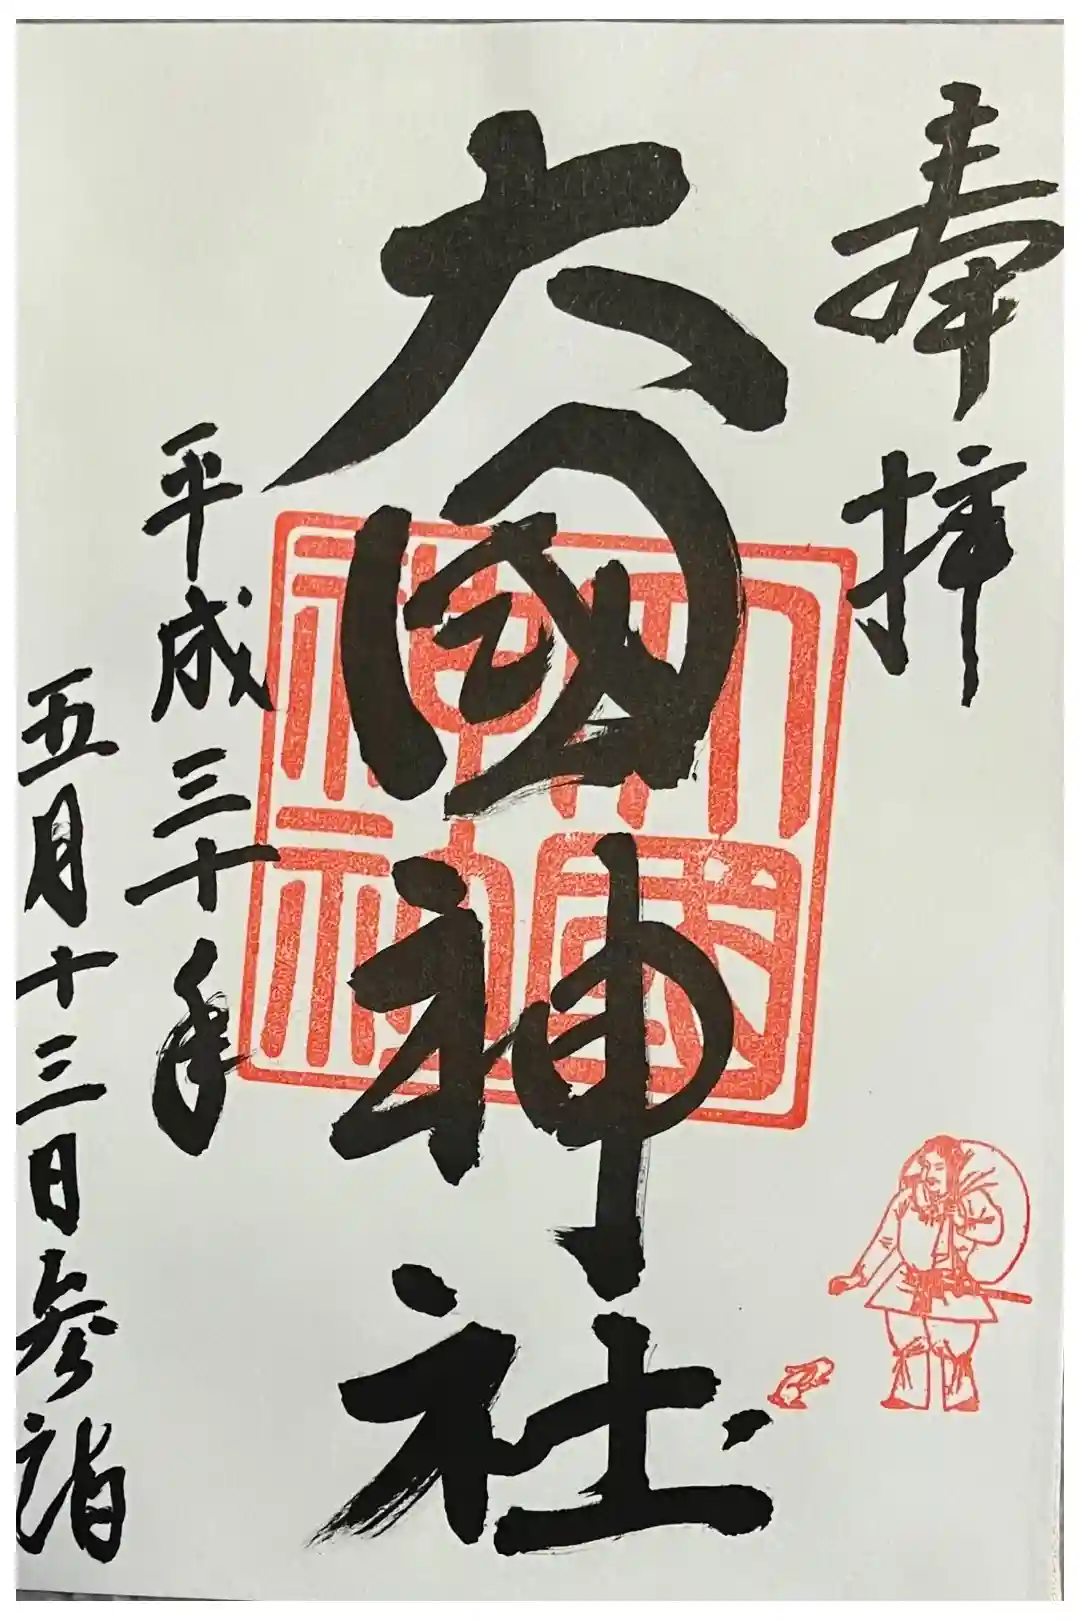 奉拝
大國神社
大國神社
平成三十年
五月十三日参詣